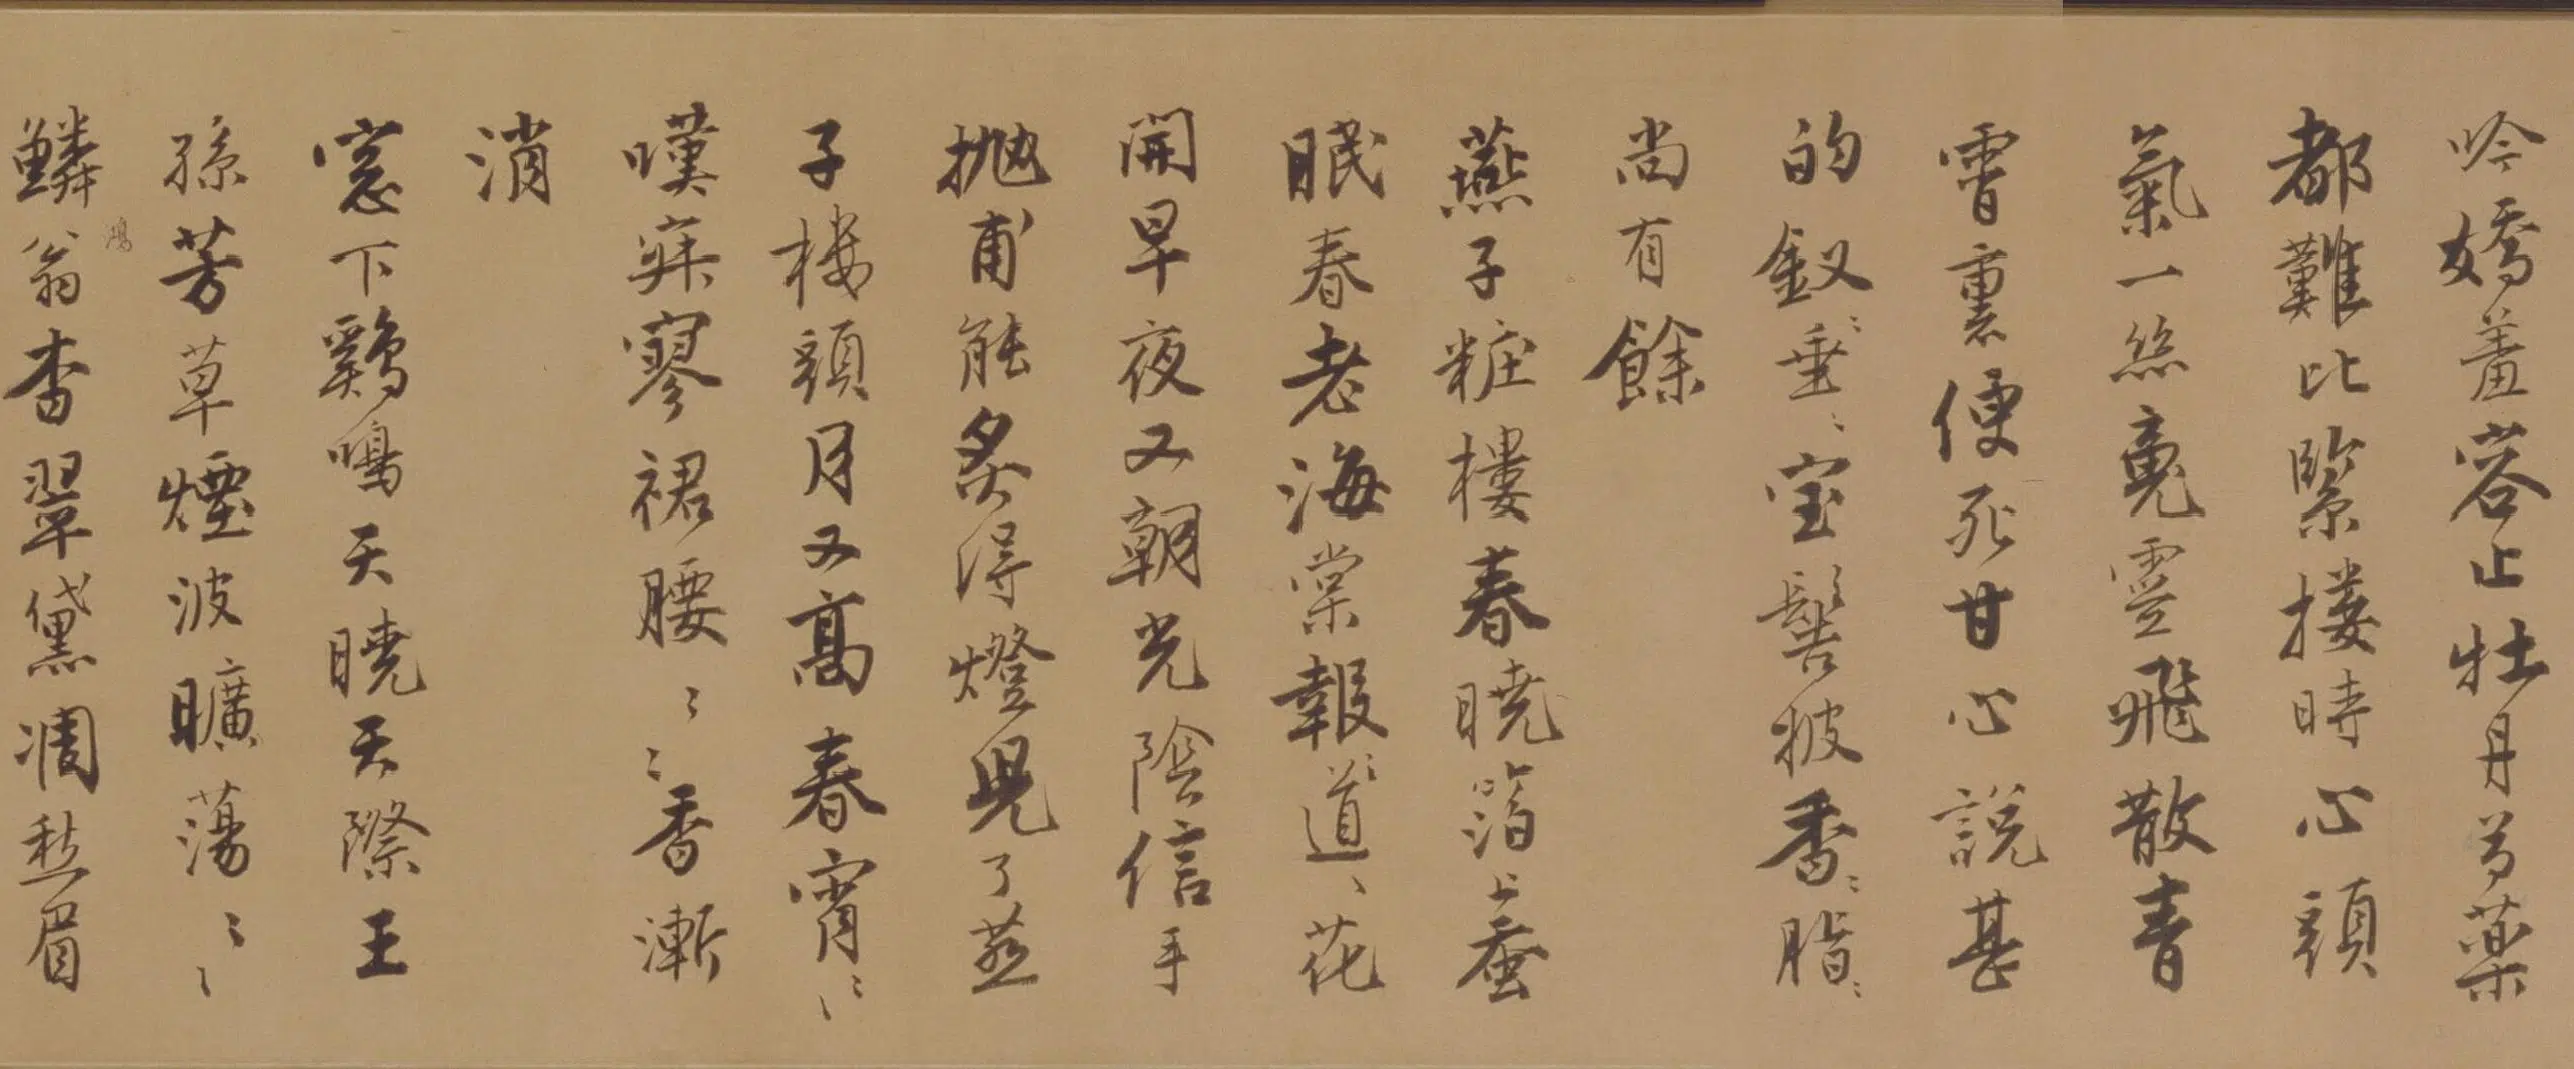 吟嬌羞容止牡丹芍藥
都難比緊摟時心頭
氣一絲魂靈飛散青
霄裏便死甘心說甚
的釵〻垂〻宝髻披香〻脂〻
尚有餘
燕子粧樓春曉箔上蚕
眠春老海棠報〻道〻花
開早夜又朝光陰信手
抛甫能炙得燈兒了燕
子樓頭月又高春宵〻〻
嘆寂寥裙腰〻〻香漸
消
窓下鷄鳴天曉天際王
孫芳草煙波曠蕩〻〻
鱗鴻翁杳翠黛凋愁眉